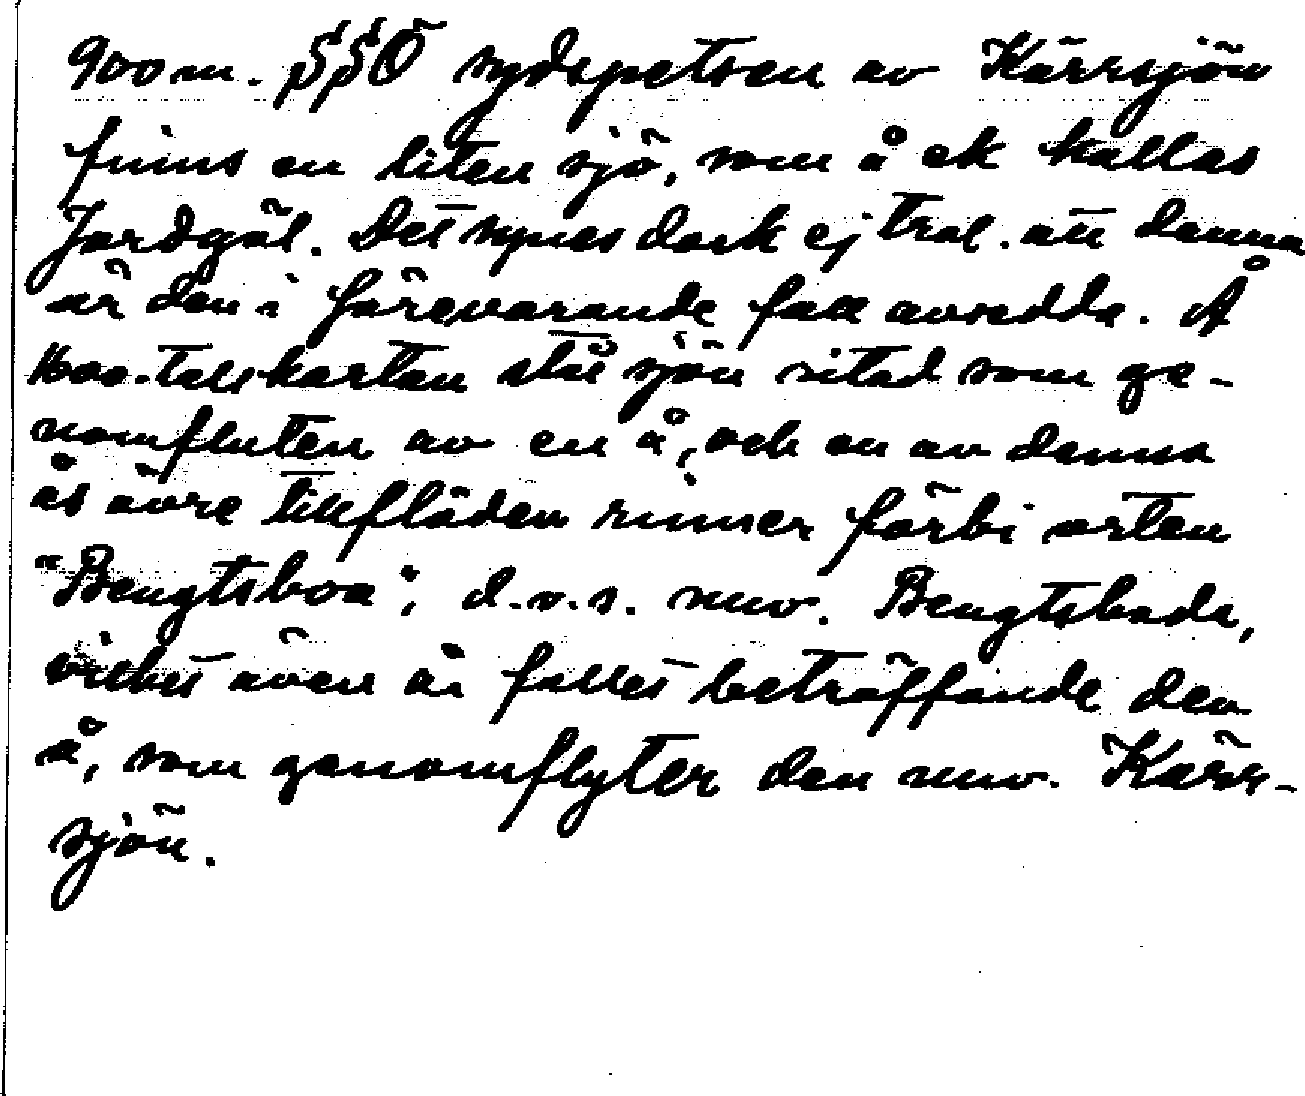 900 m. SSÖ sydspetsen av Kärrsjön
finns en liten sjö, som å ek kallas
Jordgöl. Det synes dock ej trol. att denna
är den i förevarande fall avsedda. Å
1600-talskartan står sjön ritad som ge-
nomfluten av en å, och en av denna
ås övre tillflöden rinner förbi orten
"Bengtsboa", d.v.s. nuv. Bengtsboda,
vilket även är fallet beträffande den
å, som genomflyter den nuv. Kärr-
sjön.